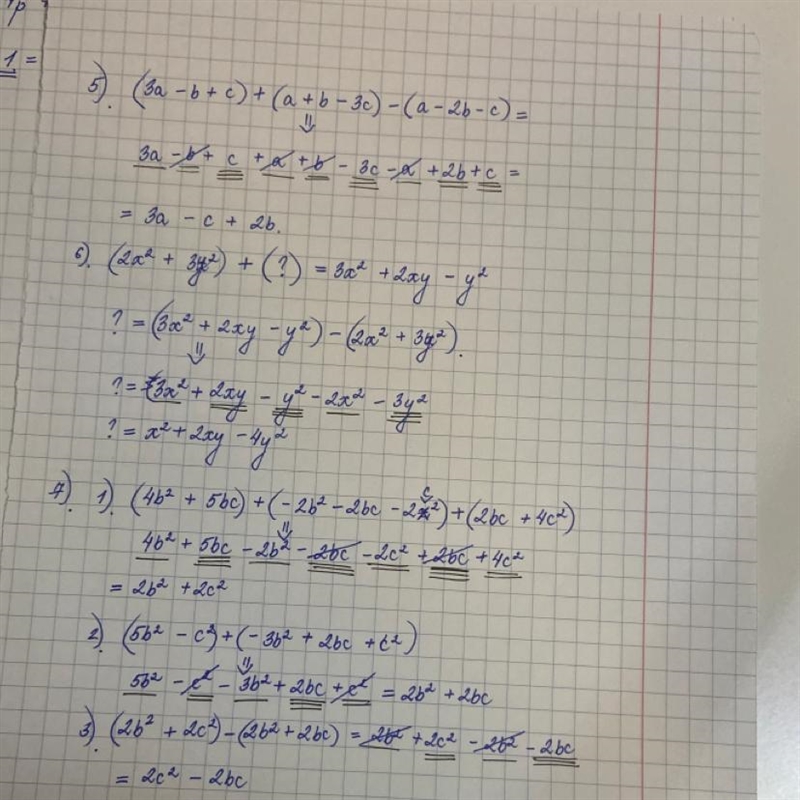 1 =
5). (3a - b + c) + (a + b - 3c) - (a - 2b - c) =
3a - b + c + a + b - 3c - a + 2b + c =
= 3a - c + 2b.
6). (2x² + 3y²) + (?) = 3x² + 2xy - y²
? = (3x² + 2xy - y²) - (2x² + 3y²).
? = 3x² + 2xy - y² - 2x² - 3y²
? = x² + 2xy - 4y²
7). 1). (4b² + 5bc) + (-2b² - 2bc - 2c²) + (2bc + 4c²)
4b² + 5bc - 2b² - 2bc - 2c² + 2bc + 4c²
= 2b² + 2c²
2). (5b² - c²) + (-3b² + 2bc + c²)
5b² - c² - 3b² + 2bc + c² = 2b² + 2bc
3). (2b² + 2c²) - (2b² + 2bc) = 2b² + 2c² - 2b² - 2bc
= 2c² - 2bc